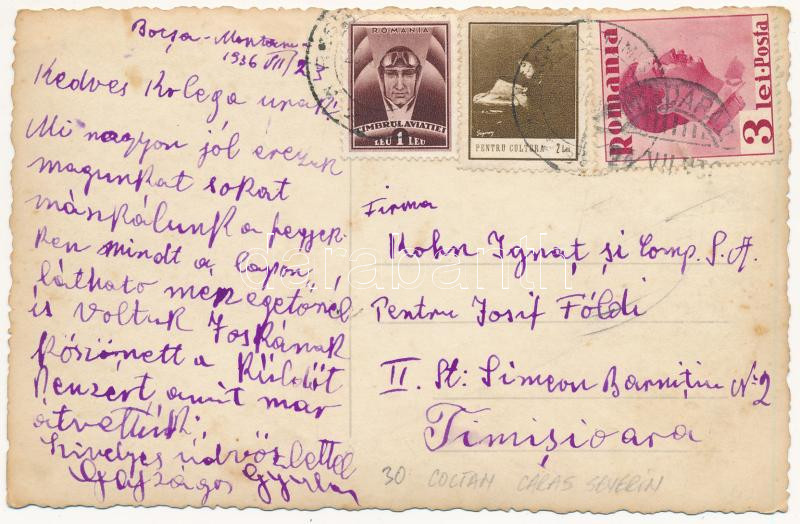 Bocşa-Montană
1936 VII/2
Kedves Kolega urak!
Mi nagyon jól érezük
magunkat sokat
mászkálunk a hegyek-
ken mindt a lapon
látható
is voltunk Joskának
Köszönett a Küldöt
Penzert amit mar
átvettünk,
Szivelyes üdvözlettel
Gyula
ROMANIA
TIMBRUL AVIATIEI
LEU 1 LEU
PENTRU CULTURA 2 Lei
Romania
3 lei·Posta
Firma
Kohn Ignaţ şi Comp. S.A.
Pentru Josif Földi
II. St: Simeon Barniţiu No 2
Timişioara
30 COLTAN CARAS SEVERIN
darabanth